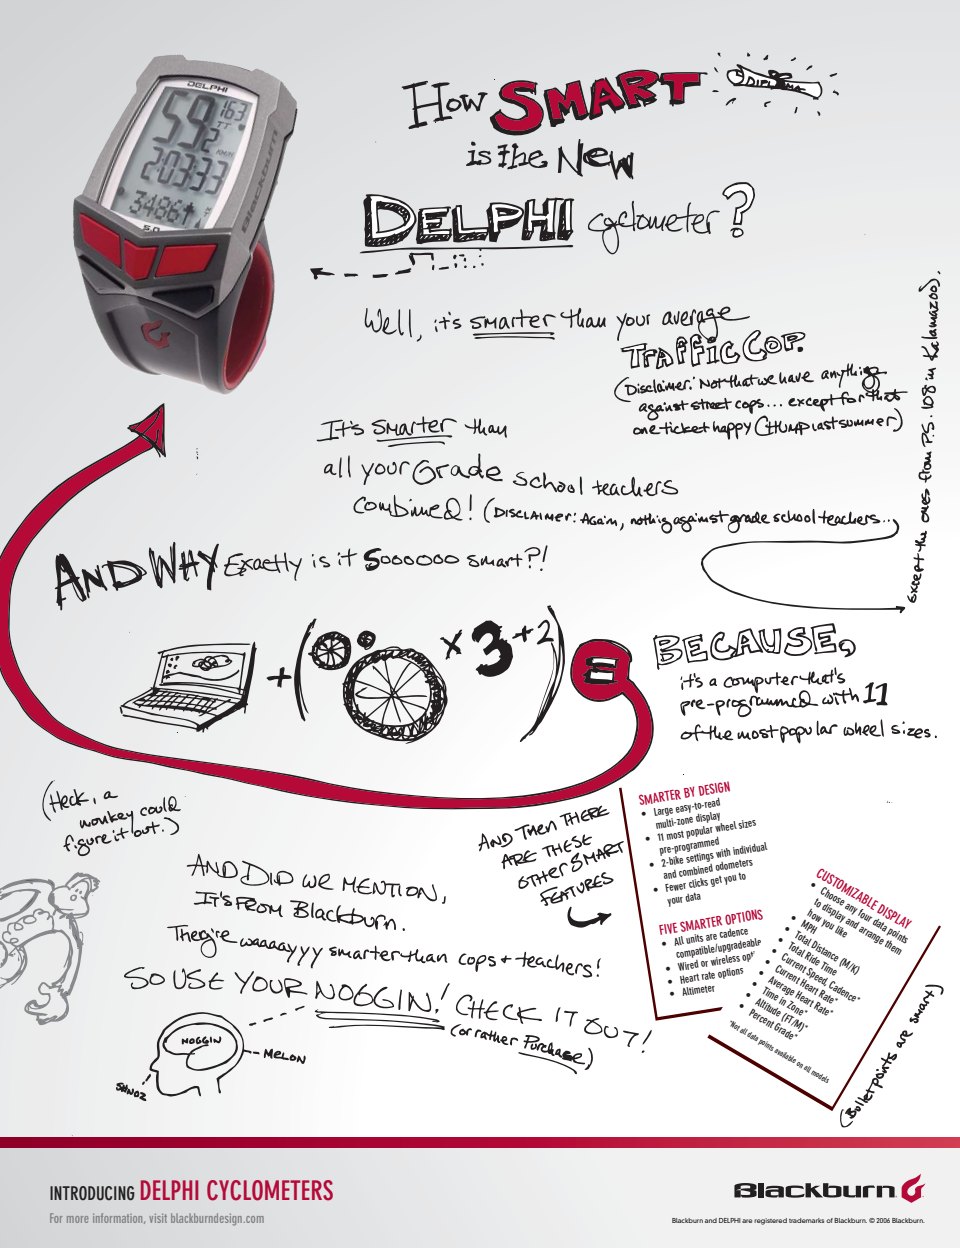 How SMART
DIPLOMA
is the New
DELPHI cyclometer?
DELPHI
59.2
163
TT
KM/H
2:03:33
34861
5.0
Blackburn
Well, it's smarter than your average
TRAFFIC COP.
(Disclaimer: Not that we have anything
against street cops... except for that
one ticket happy CHUMP last summer)
It's smarter than
all your Grade school teachers
combined! (DISCLAIMER: Again, nothing against grade school teachers...
except the ones from P.S. 108 in Kalamazoo).
AND WHY Exactly is it Soooooo smart?!
+ ( x 3 +2 ) =
BECAUSE,
it's a computer that's
pre-programmed with 11
of the most popular wheel sizes.
(Heck, a
monkey could
figure it out.)
AND THEN THERE
ARE THESE
OTHER SMART
FEATURES
SMARTER BY DESIGN
• Large easy-to-read
multi-zone display
• 11 most popular wheel sizes
pre-programmed
• 2-bike settings with individual
and combined odometers
• Fewer clicks get you to
your data
FIVE SMARTER OPTIONS
• All units are cadence
compatible/upgradeable
• Wired or wireless opt
• Heart rate options
• Altimeter
CUSTOMIZABLE DISPLAY
• Choose any four data points
to display and arrange them
how you like
• MPH
• Total Distance (M/K)
• Total Ride Time
• Current Speed, Cadence*
• Current Heart Rate*
• Average Heart Rate*
• Time in Zone*
• Altitude (FT/M)*
• Percent Grade*
*Not all data points available on all models
(Bullet points are smart)
AND DID WE MENTION,
IT'S FROM Blackburn.
They're waaaayyy smarter than cops + teachers!
SO USE YOUR NOGGIN! CHECK IT OUT!
(or rather Purchase)
NOGGIN
MELON
SHNOZ
INTRODUCING DELPHI CYCLOMETERS
For more information, visit blackburndesign.com
Blackburn
Blackburn and DELPHI are registered trademarks of Blackburn. © 2006 Blackburn.